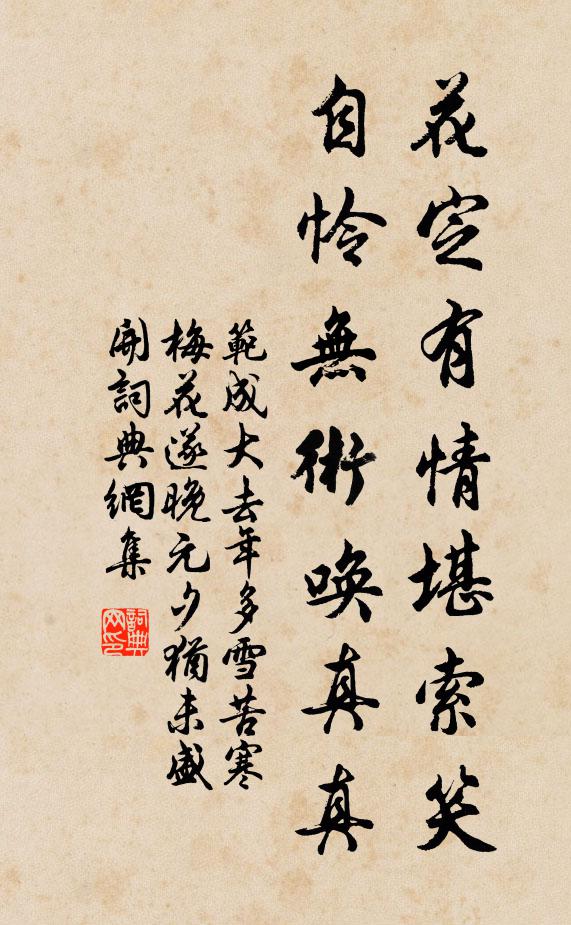 花定有情堪索笑
自怜無術唤真真
範成大去年多雪苦寒
梅花遂晚元夕猶未盛
開詞典網集
詞典
网印